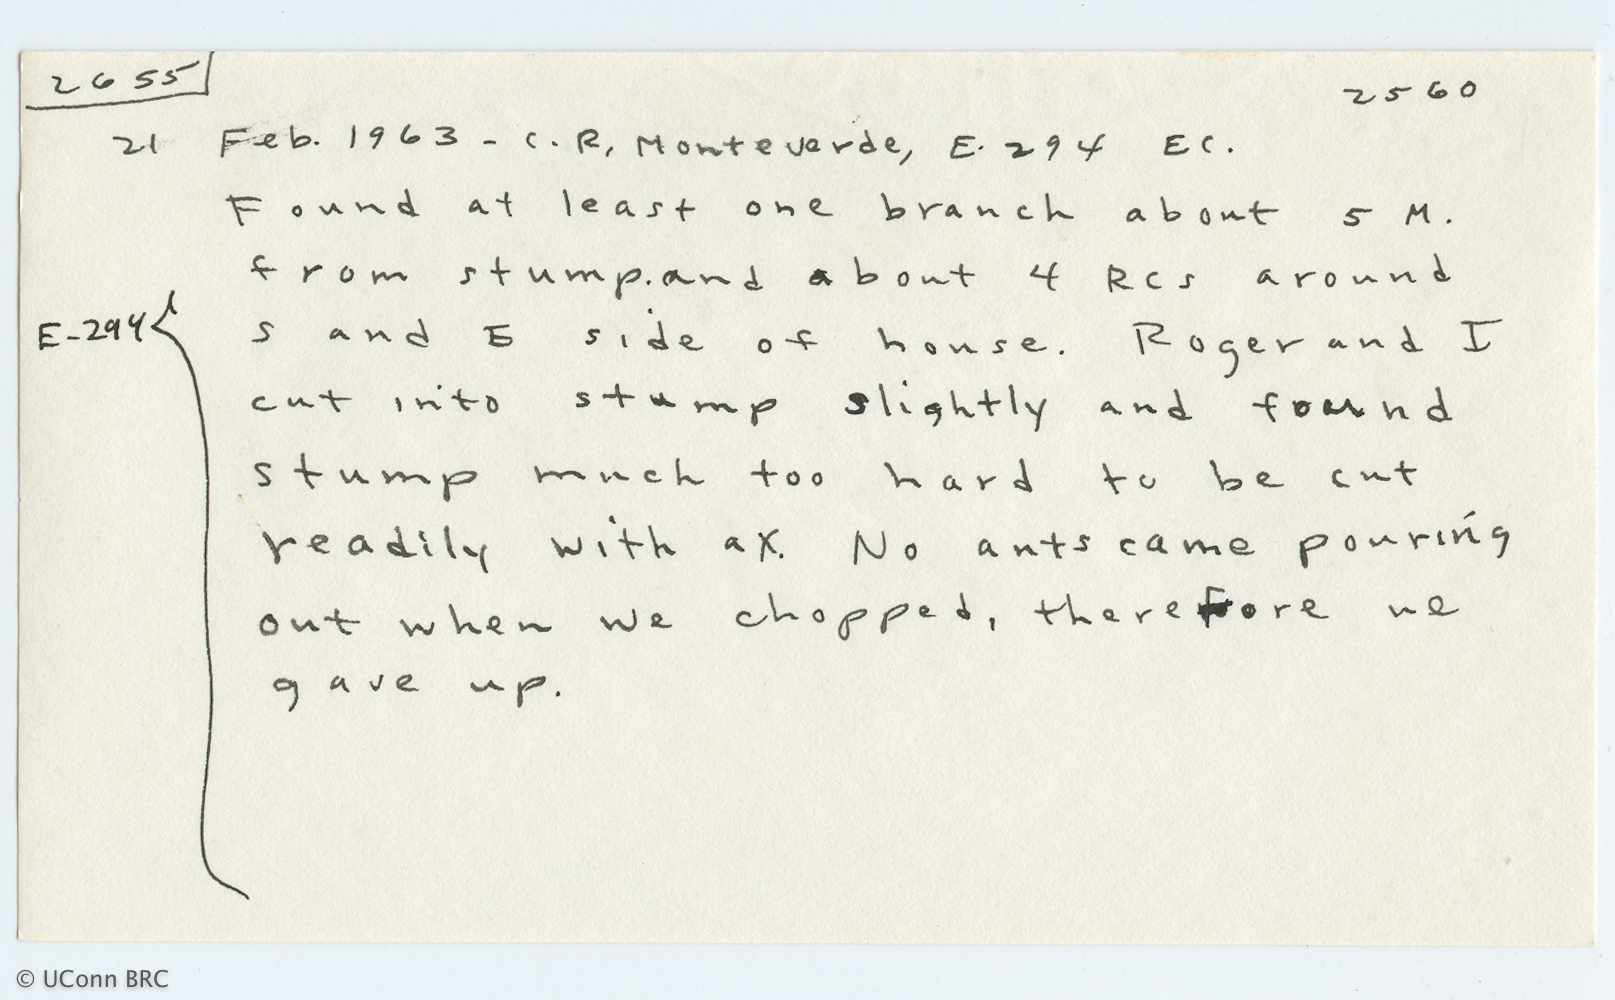 2655
2560
21 Feb. 1963 - C.R, Monteverde, E-294 EC.
Found at least one branch about 5 M.
from stump.and about 4 RCs around
E-294
S and E side of house. Roger and I
cut into stump slightly and found
stump much too hard to be cut
readily with ax. No ants came pouring
out when we chopped, therefore we
gave up.
© UConn BRC